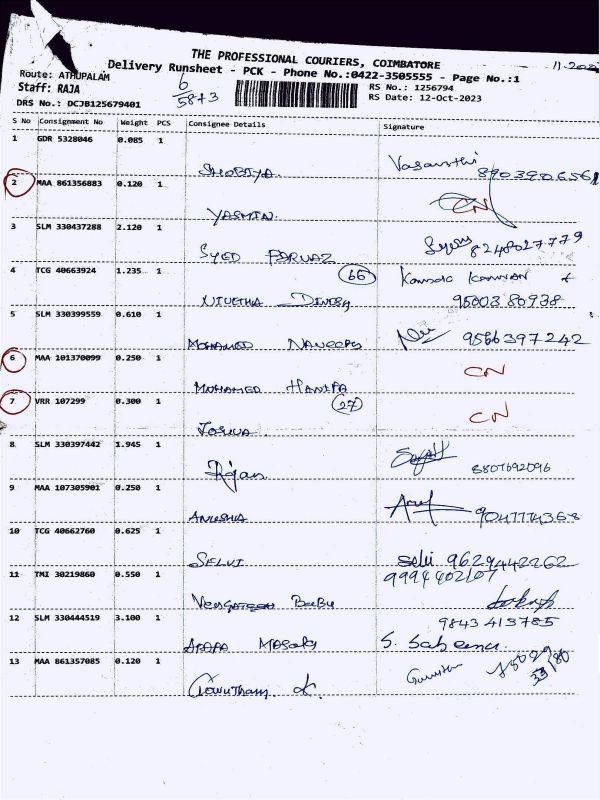 THE PROFESSIONAL COURIERS, COIMBATORE
Delivery Runsheet - PCK - Phone No.:0422-3505555 - Page No.:1
Route: ATHUPALAM
Staff: RAJA
DRS No.: DCJB125679401
6
58+3
RS No.: 1256794
RS Date: 12-Oct-2023
S No Consignment No Weight PCS Consignee Details Signature
1 GDR 5328046 0.085 1 SHOBIYA Vasanthi 8903906561
2 MAA 861356883 0.120 1 YASMIN CN
3 SLM 330437288 2.120 1 SYED PARVAZ 8248027779
4 TCG 40663924 1.235 1 NIVETHA DINESH 66 9500380938
5 SLM 330399559 0.610 1 MOHAMED 9566397242
6 MAA 101370099 0.250 1 MUHAMED HANIFA CN
7 VRR 107299 0.300 1 27 CN
8 SLM 330397442 1.945 1 Rajan 8807692096
9 MAA 107305901 0.250 1 ANUSHA
10 TCG 40662760 0.625 1 SELVI selvi 9629442262
11 TMI 30219860 0.550 1 Babu
12 SLM 330444519 3.100 1 9843413785
13 MAA 861357085 0.120 1 Gowutham K.